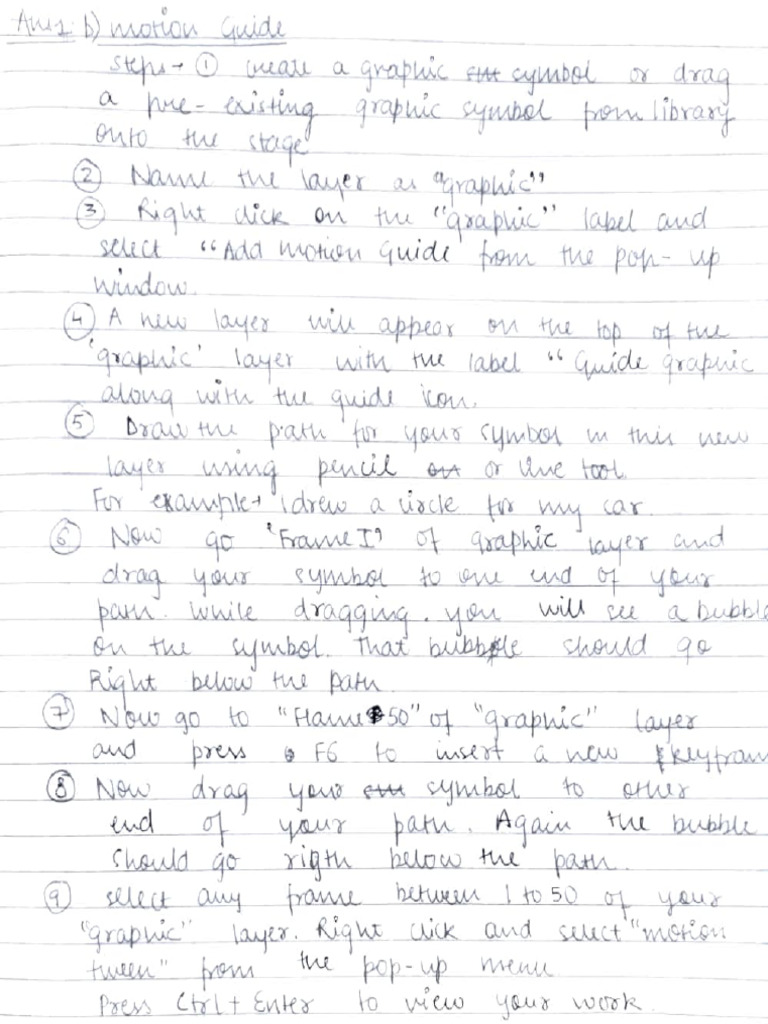 Ans 1: b) motion Guide
Steps → ① create a graphic symbol or drag
a pre-existing graphic symbol from library
onto the stage
② Name the layer as "graphic"
③ Right click on the "graphic" label and
select "Add motion Guide from the pop-up
window.
④ A new layer will appear on the top of the
'graphic' layer with the label "Guide graphic
along with the guide icon.
⑤ Draw the path for your symbol in this new
layer using pencil or line tool
For example → I drew a circle for my car.
⑥ Now go 'Frame I' of graphic layer and
drag your symbol to one end of your
path. While dragging. you will see a bubble
on the symbol. That bubble should go
Right below the path
⑦ Now go to "Flame 50" of "graphic" layer
and press F6 to insert a new keyfram
⑧ Now drag your symbol to other
end of your path. Again the bubble
should go rigth below the path.
⑨ select any frame between 1 to 50 of your
"graphic" layer. Right click and select "motion
tween" from the pop-up menu
Press Ctrl + Enter to view your work.